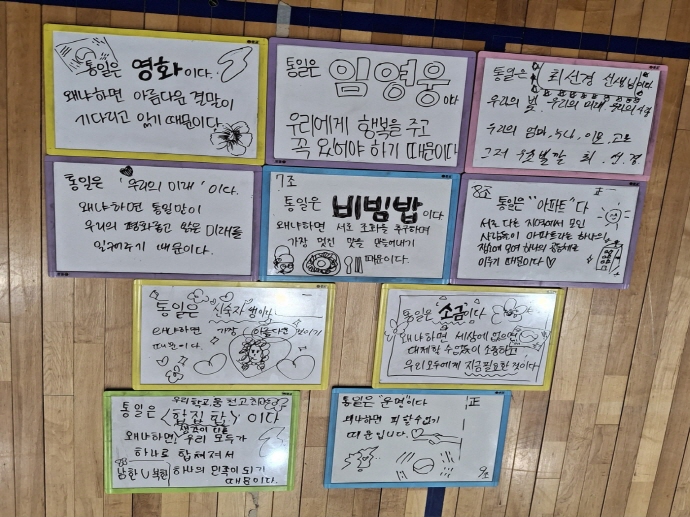 통일은 영화이다.
왜냐하면 아름다운 결말이
기다리고 있기 때문이다.
통일은 임영웅이다
우리에게 행복을 주고
꼭 있어야 하기 때문이다
통일은 최선경 선생님이다
우리의 빛, 우리의 미래
우리의 엄마, 누나, 이모, 고모
그저 웃 빛깔 최.선.경
통일은 '우리의 미래'이다.
왜냐하면 통일만이
우리의 평화롭고 밝은 미래를
때문이다.
7조
통일은 비빔밥이다
왜냐하면 서로 조화를 추구하며
가장 멋진 맛을 만들어내기
때문이다.
8조
통일은 "아파트"다
서로 다른 지역에서 모인
사람들이 아파트라는 하나의
장소에 모여 하나의 공동체로
이루기 때문이다♡
正
통일은 신숙자쌤이다
왜냐하면 가장 아름다운 것이기
때문이다.
통일은 '소금'이다
왜냐하면 세상에 없으면
대체할 수 없듯이 소중하고
우리 모두에게 지금필요한 것이다
우리학교 통
통일은 <합집합>이다
왜냐하면, 우리 모두가
하나로 합쳐져서
남한∪북한 하나의 민족이 되기
때문이다.
통일은 "운명"이다
왜냐하면 피할수없기
때문입니다.
正
9조